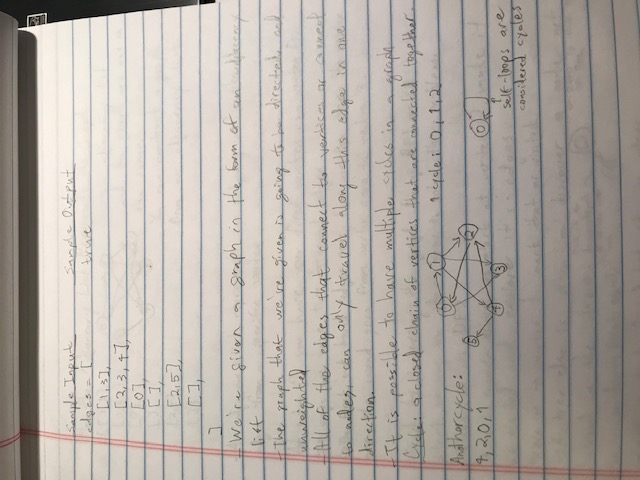 Sample Input Sample Output
edges = [ true
[1,3],
[2,3,4],
[0],
[ ],
[2,5],
[ ],
]
- We're given a graph in the form of an adjacency
list
- The graph that we've given is going to be directed, and
unweighted
- All of the edges that connect to vertices or connect
to nodes, can only travel along this edge in one
direction.
- It is possible to have multiple cycles in a graph
Cycle: a closed chain of vertices that are connected together.
1 cycle: 0, 1, 2
Another cycle:
4, 2, 0, 1
0 1
5 2
4 3
0
self-loops are
considered cycles